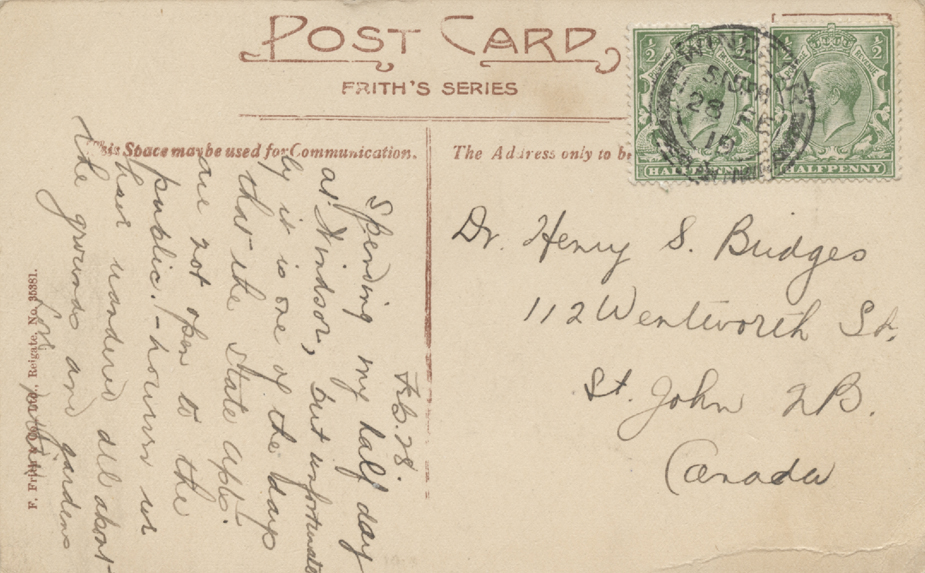 POST CARD
FRITH'S SERIES
This Space may be used for Communication.
The Address only to be
½ ½
½ ½
HALFPENNY
HALFPENNY
WINDSOR
28
15
Feb. 28.
Spending my half day
at Windsor, but unfortunate
ly it is one of the days
that the State Apts.
are not open to the
public. - however we
have wandered all about
the grounds and gardens
Dr. Henry S. Bridges
112 Wentworth St.
St. John N B.
Canada
F. Frith & Co., Ltd., Reigate. No. 35381.